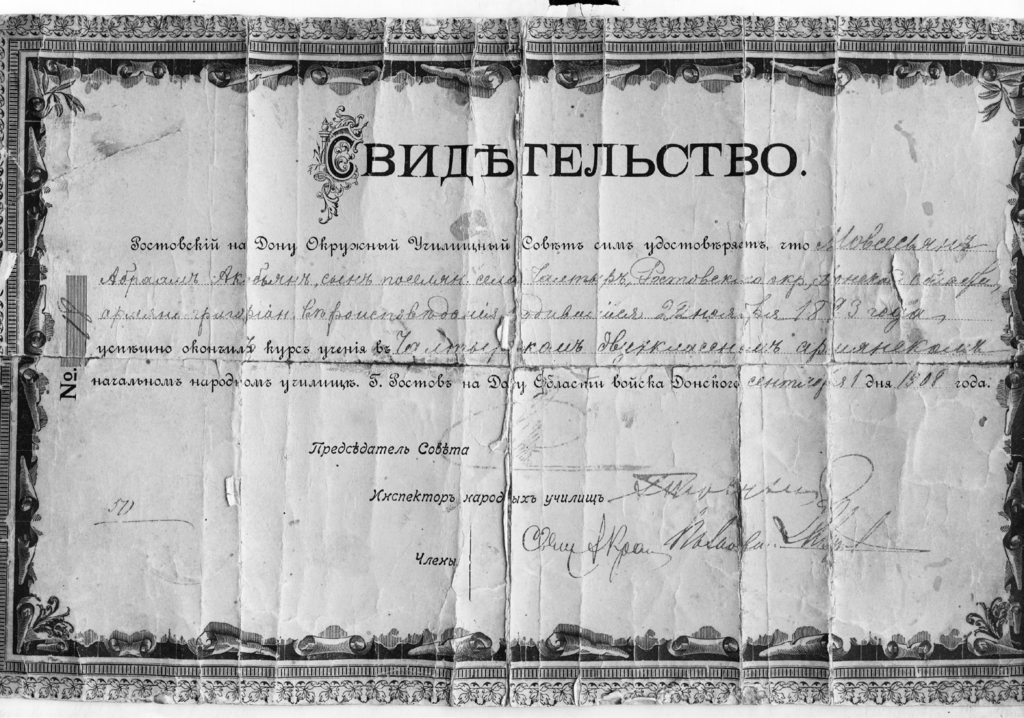 СВИДѢТЕЛЬСТВО.
Ростовскій на Дону Окружный Училищный Совѣтъ симъ удостовѣряетъ, что Мовсесьянъ
Абраамъ сынъ поселян. села Чалтырь, Ростовского окр, Донской области,
армяно-григоріан. вѣроисповѣданія, родившійся 22 ноября 1893 года,
успѣшно окончилъ курсъ ученія въ Чалтырскомъ двухклассномъ армянскомъ
начальномъ народномъ училищѣ. Г. Ростовъ на Дону Области войска Донского сентября 1 дня 1908 года.
№
Предсѣдатель Совѣта
Инспекторъ народныхъ училищъ
Члены